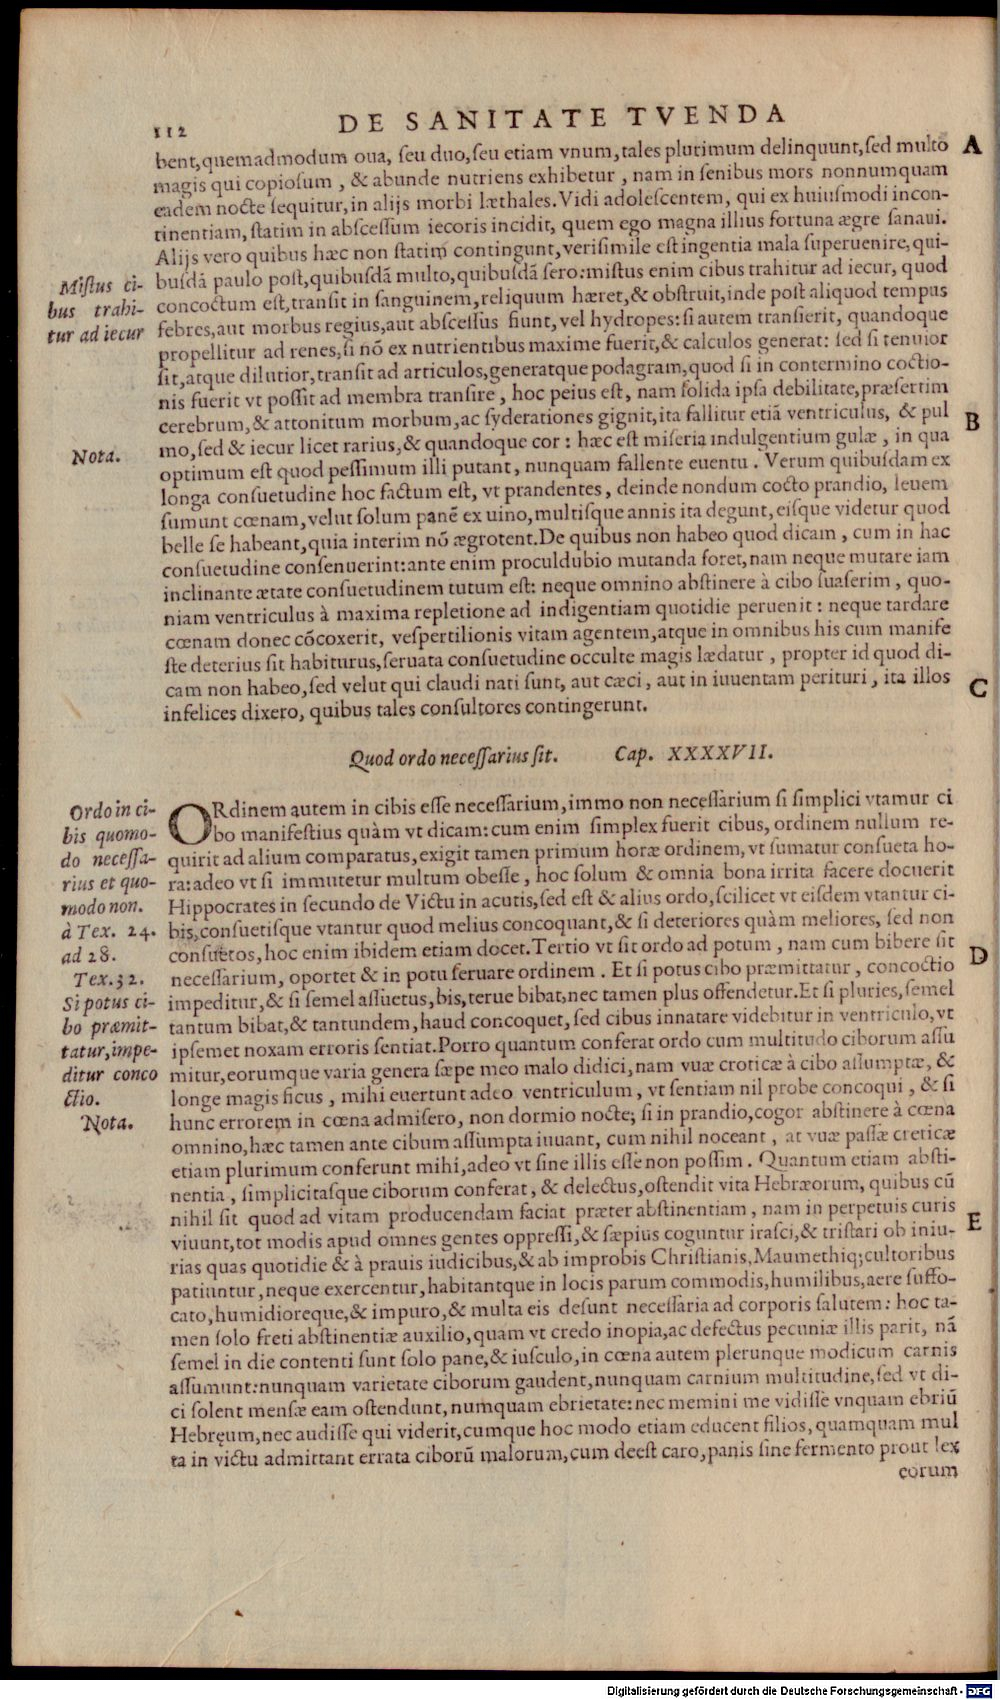 112 DE SANITATE TVENDA
bent,quemadmodum oua, seu duo,seu etiam vnum,tales plurimum delinquunt,sed multo
magis qui copiosum, & abunde nutriens exhibetur, nam in senibus mors nonnumquam
eadem nocte sequitur,in alijs morbi læthales.Vidi adolescentem, qui ex huiusmodi incon-
tinentiam,statim in abscessum iecoris incidit, quem ego magna illius fortuna ægre sanaui.
Alijs vero quibus hæc non statim contingunt,verisimile est ingentia mala superuenire,qui-
busdã paulo post,quibusdã multo,quibusdã sero:mistus enim cibus trahitur ad iecur, quod
concoctum est,transit in sanguinem,reliquum hæret,& obstruit,inde post aliquod tempus
febres,aut morbus regius,aut abscessus fiunt,vel hydropes:si autem transierit, quandoque
propellitur ad renes,si nõ ex nutrientibus maxime fuerit,& calculos generat: sed si tenuior
sit,atque dilutior,transit ad articulos,generatque podagram,quod si in contermino coctio-
nis fuerit vt possit ad membra transire, hoc peius est, nam solida ipsa debilitate,præsertim
cerebrum,& attonitum morbum,ac syderationes gignit,ita fallitur etiã ventriculus, & pul
mo,sed & iecur licet rarius,& quandoque cor: hæc est miseria indulgentium gulæ, in qua
optimum est quod pessimum illi putant, nunquam fallente euentu. Verum quibusdam ex
longa consuetudine hoc factum est, vt prandentes, deinde nondum cocto prandio, leuem
sumunt cœnam,velut solum panẽ ex uino,multisque annis ita degunt,eisque videtur quod
belle se habeant,quia interim nõ ægrotent.De quibus non habeo quod dicam, cum in hac
consuetudine consenuerint:ante enim proculdubio mutanda foret,nam neque mutare iam
inclinante ætate consuetudinem tutum est: neque omnino abstinere à cibo suaserim, quo-
niam ventriculus à maxima repletione ad indigentiam quotidie peruenit: neque tardare
cœnam donec cõcoxerit, vespertilionis vitam agentem,atque in omnibus his cum manife
ste deterius sit habiturus,seruata consuetudine occulte magis lædatur, propter id quod di-
cam non habeo,sed velut qui claudi nati sunt, aut cæci, aut in iuuentam perituri, ita illos
infelices dixero, quibus tales consultores contingerunt.
Mistus ci-
bus trahi-
tur ad iecur
Nota.
A
B
C
Quod ordo necessarius sit. Cap. XXXXVII.
ORdinem autem in cibis esse necessarium,immo non necessarium si simplici vtamur ci
bo manifestius quàm vt dicam:cum enim simplex fuerit cibus, ordinem nullum re-
quirit ad alium comparatus,exigit tamen primum horæ ordinem,vt sumatur consueta ho-
ra:adeo vt si immutetur multum obesse, hoc solum & omnia bona irrita facere docuerit
Hippocrates in secundo de Victu in acutis,sed est & alius ordo,scilicet vt eisdem vtantur ci-
bis,consuetisque vtantur quod melius concoquant,& si deteriores quàm meliores, sed non
consuetos,hoc enim ibidem etiam docet.Tertio vt sit ordo ad potum, nam cum bibere sit
necessarium, oportet & in potu seruare ordinem. Et si potus cibo præmittatur, concoctio
impeditur,& si semel assuetus,bis,terue bibat,nec tamen plus offendetur.Et si pluries,semel
tantum bibat,& tantundem,haud concoquet,sed cibus innatare videbitur in ventriculo,vt
ipsemet noxam erroris sentiat.Porro quantum conferat ordo cum multitudo ciborum assu
mitur,eorumque varia genera sæpe meo malo didici,nam vuæ croticæ à cibo assumptæ, &
longe magis ficus, mihi euertunt adeo ventriculum, vt sentiam nil probe concoqui, & si
hunc errorem in cœna admisero, non dormio nocte; si in prandio,cogor abstinere à cœna
omnino,hæc tamen ante cibum assumpta iuuant, cum nihil noceant, at vuæ passæ creticæ
etiam plurimum conferunt mihi,adeo vt sine illis esse non possim. Quantum etiam absti-
nentia, simplicitasque ciborum conferat, & delectus,ostendit vita Hebræorum, quibus cũ
nihil sit quod ad vitam producendam faciat præter abstinentiam, nam in perpetuis curis
viuunt,tot modis apud omnes gentes oppressi,& sæpius coguntur irasci,& tristari ob iniu-
rias quas quotidie & à prauis iudicibus,& ab improbis Christianis,Maumethiq;cultoribus
patiuntur,neque exercentur,habitantque in locis parum commodis,humilibus,aere suffo-
cato,humidioreque,& impuro,& multa eis desunt necessaria ad corporis salutem: hoc ta-
men solo freti abstinentiæ auxilio,quam vt credo inopia,ac defectus pecuniæ illis parit, nã
semel in die contenti sunt solo pane,& iusculo,in cœna autem plerunque modicum carnis
assumunt:nunquam varietate ciborum gaudent,nunquam carnium multitudine,sed vt di-
ci solent mensæ eam ostendunt,numquam ebrietate:nec memini me vidisse vnquam ebriũ
Hebręum,nec audisse qui viderit,cumque hoc modo etiam educent filios,quamquam mul
ta in victu admittant errata ciborũ malorum,cum deest caro,panis sine fermento prout lex
eorum
Ordo in ci-
bis quomo-
do necessa-
rius et quo-
modo non.
à Tex. 24.
ad 28.
Tex.32.
Si potus ci-
bo præmit-
tatur,impe-
ditur conco
ctio.
Nota.
D
E
Digitalisierung gefördert durch die Deutsche Forschungsgemeinschaft - DFG